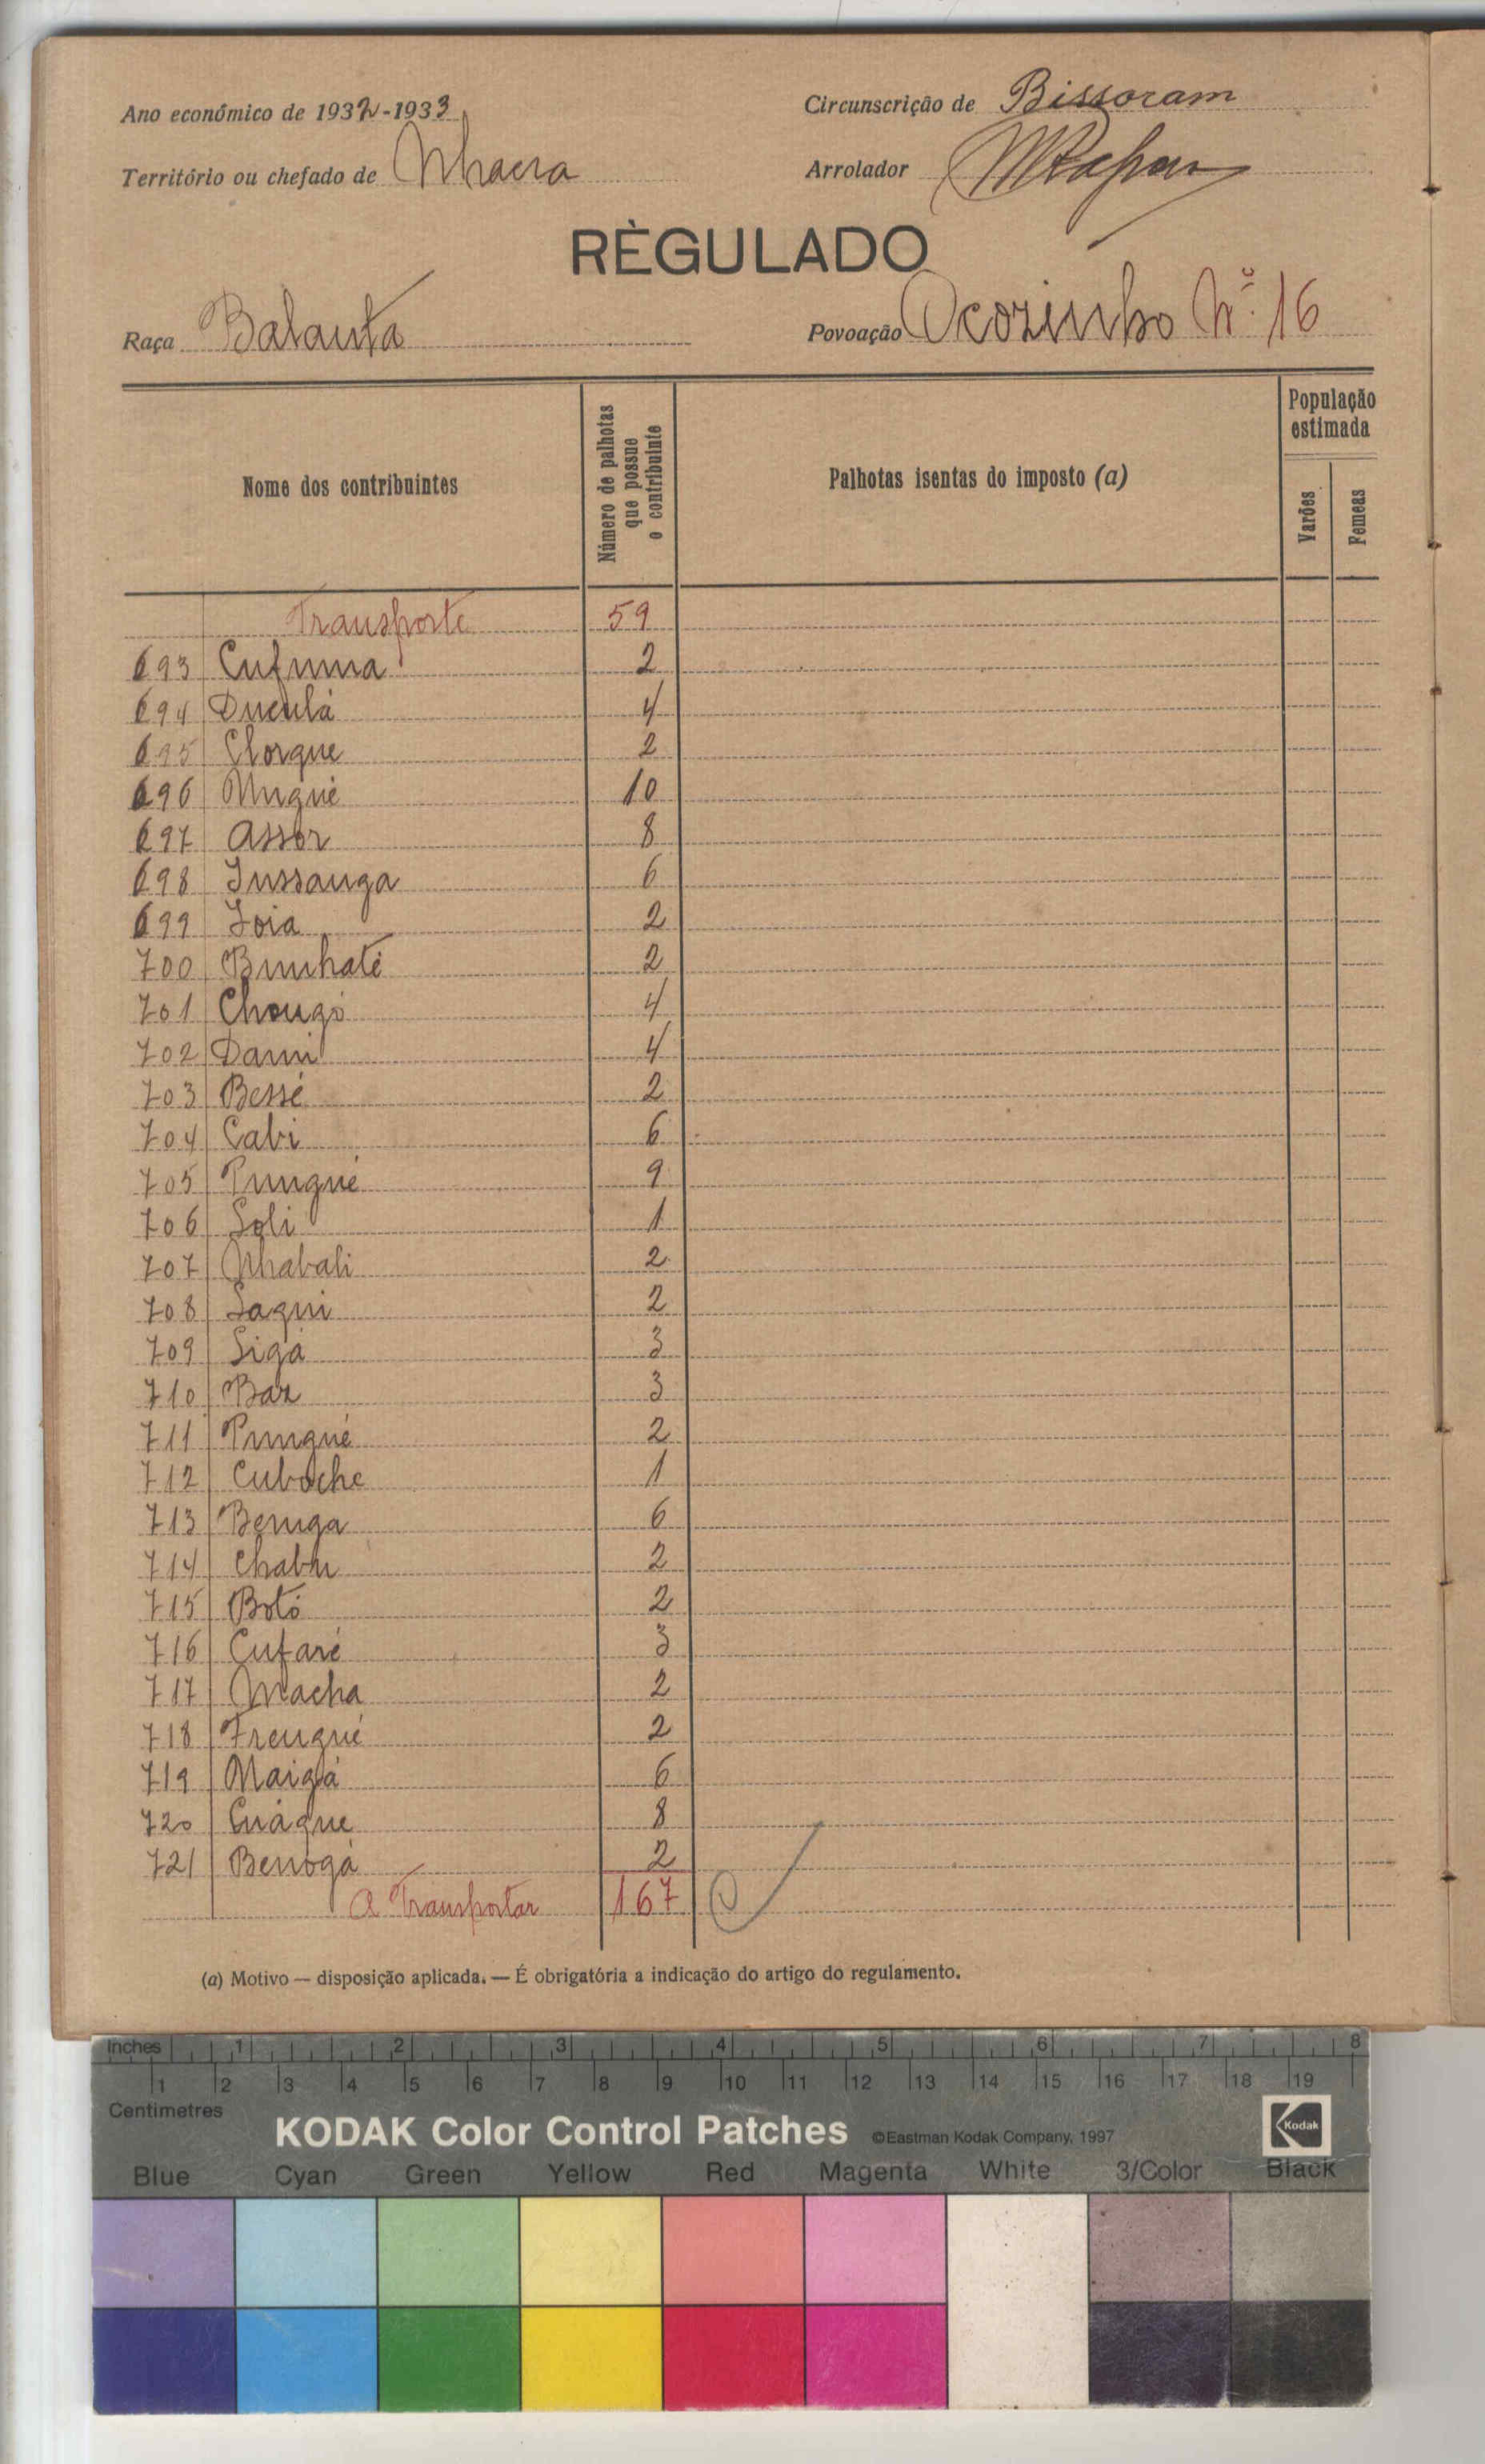 Ano económico de 1932-1933
Circunscrição de Bissoram
Território ou chefado de Nhaera
Arrolador
RÈGULADO
Raça Balanta
Povoação Ocozinho Nº 16
Nome dos contribuintes
Número de palhotas que possue o contribuinte
Palhotas isentas do imposto (a)
População estimada
Varões
Femeas
Transporte 59
693 Cufuma 2
694 Ducula 4
695 Clorque 2
696 Mugué 10
697 Assor 8
698 Jussanga 6
699 Joia 2
700 Bunhaté 2
701 Chougó 4
702 Dami 4
703 Bessé 2
704 Cabi 6
705 Pungué 9
706 Soli 1
707 Nhabali 2
708 Saqui 2
709 Sigá 3
710 Baz 3
711 Pungué 2
712 Cuboche 1
713 Benuga 6
714 Chabu 2
715 Botó 2
716 Cufaré 3
717 Macha 2
718 Frengué 2
719 Naigá 6
720 Cuáque 8
721 Benogá 2
A Transportar 167
(a) Motivo — disposição aplicada. — É obrigatória a indicação do artigo do regulamento.
Inches 1 2 3 4 5 6 7 8
1 2 3 4 5 6 7 8 9 10 11 12 13 14 15 16 17 18 19
Centimetres
KODAK Color Control Patches ©Eastman Kodak Company, 1997 Kodak
Blue Cyan Green Yellow Red Magenta White 3/Color Black